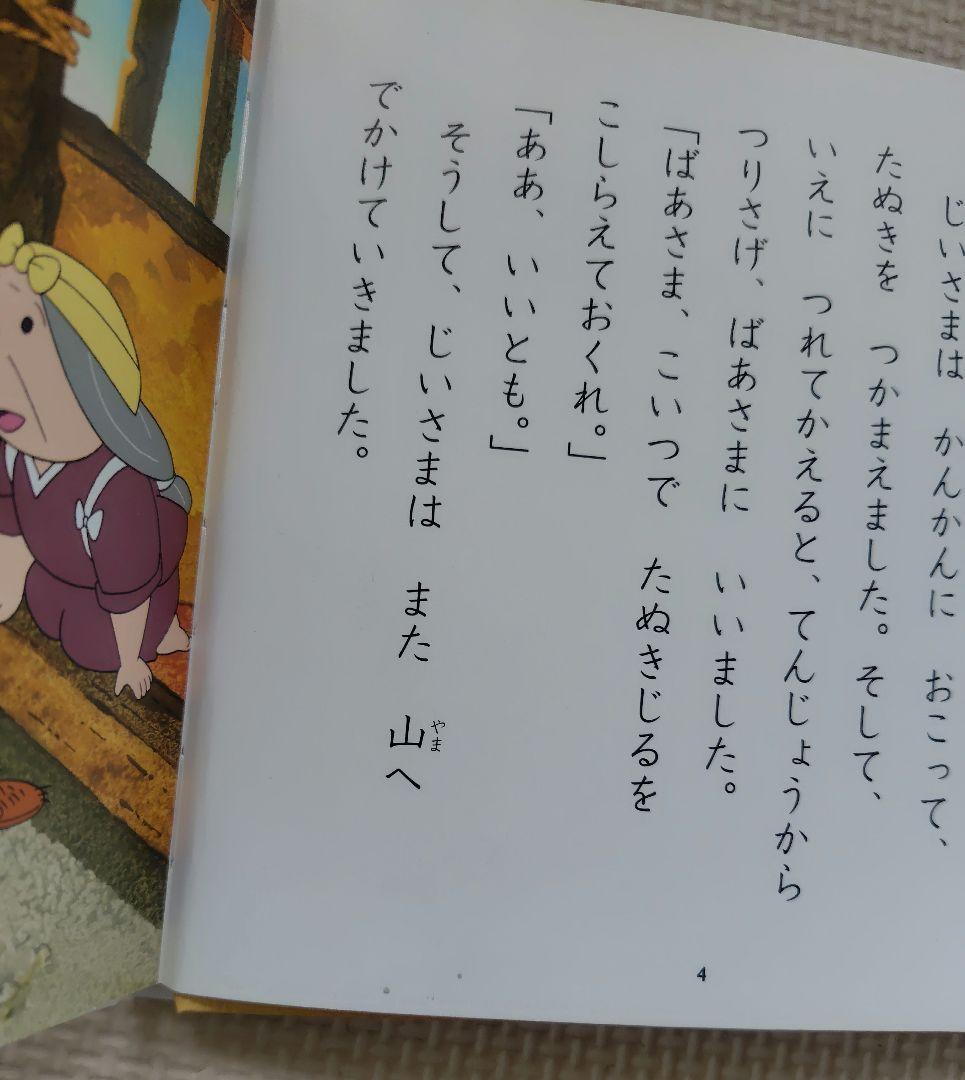 じいさまは　かんかんに　おこって、
たぬきを　つかまえました。そして、
いえに　つれてかえると、てんじょうから
つりさげ、ばあさまに　いいました。
「ばあさま、こいつで　たぬきじるを
こしらえておくれ。」
「ああ、いいとも。」
そうして、じいさまは　また　山へ
やま
でかけていきました。
4